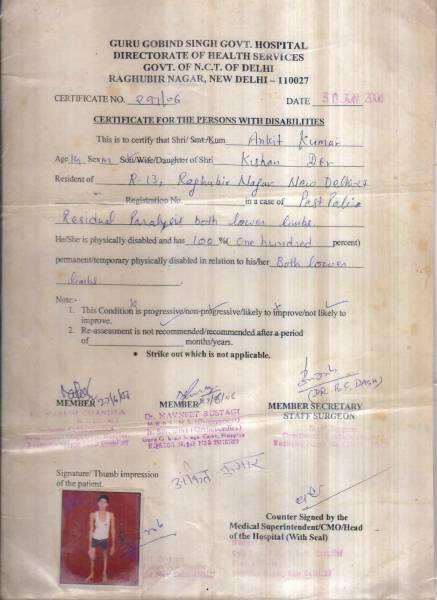 GURU GOBIND SINGH GOVT. HOSPITAL
DIRECTORATE OF HEALTH SERVICES
GOVT. OF N.C.T. OF DELHI
RAGHUBIR NAGAR, NEW DELHI – 110027
CERTIFICATE NO. 297/06 DATE 30 JUN 2006
CERTIFICATE FOR THE PERSONS WITH DISABILITIES
This is to certify that Shri/ Smt./Kum Ankit Kumar
Age Sex M Son/Wife/Daughter of Shri Kishan Dev
Resident of R-13, Raghubir Nagar New Delhi-27
Registration No. in a case of Post Polio
Residual Paralysis both lower limbs.
He/She is physically disabled and has 100 %( One hundred percent)
permanent/temporary physically disabled in relation to his/her Both lower
limbs
Note:-
1. This Condition is progressive/non-progressive/likely to improve/not likely to
improve.
2. Re-assessment is not recommended/recommended after a period
of months/years.
• Strike out which is not applicable.
MEMBER MEMBER MEMBER SECRETARY
STAFF SURGEON
(DR. B.C. DASH)
Dr. NAVNEET RUSTAGI
Signature/ Thumb impression
of the patient.
अंकित कुमार
Counter Signed by the
Medical Superintendent/CMO/Head
of the Hospital (With Seal)